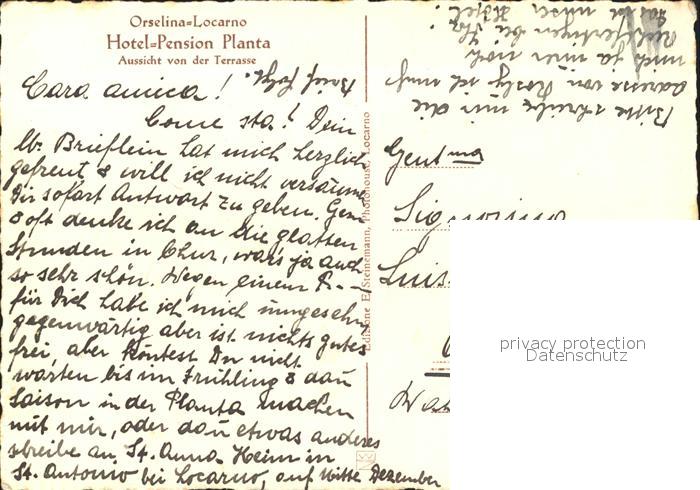 Orselina-Locarno
Hotel-Pension Planta
Aussicht von der Terrasse
Cara amica!
Come sta! Dein
lb. Brieflein hat mich herzlich
gefreut & will ich nicht versäumen
Dir sofort Antwort zu geben. Gern
& oft denke ich an die glatten
Stunden in Chur, war's ja auch
so sehr schön. Wegen einem P.--
für Dich habe ich mich umgesehn
gegenwärtig aber ist nichts gutes
frei, aber köntest Du nicht
warten bis im Frühling & dan
Saison in der Planta machen
mit mir, oder dan etwas anderes
schreibe an St. Anna-Heim in
St. Antonio bei Locarno, auf Mitte Dezember
Edizione E. Steinemann, Photohouse, Locarno
Bitte schreibe mir die
Adresse von Rosly ich muss
mich ja immer noch
rechtfertigen bei Ihr
Gent.ma
Signorina
Luis
privacy protection
Datenschutz